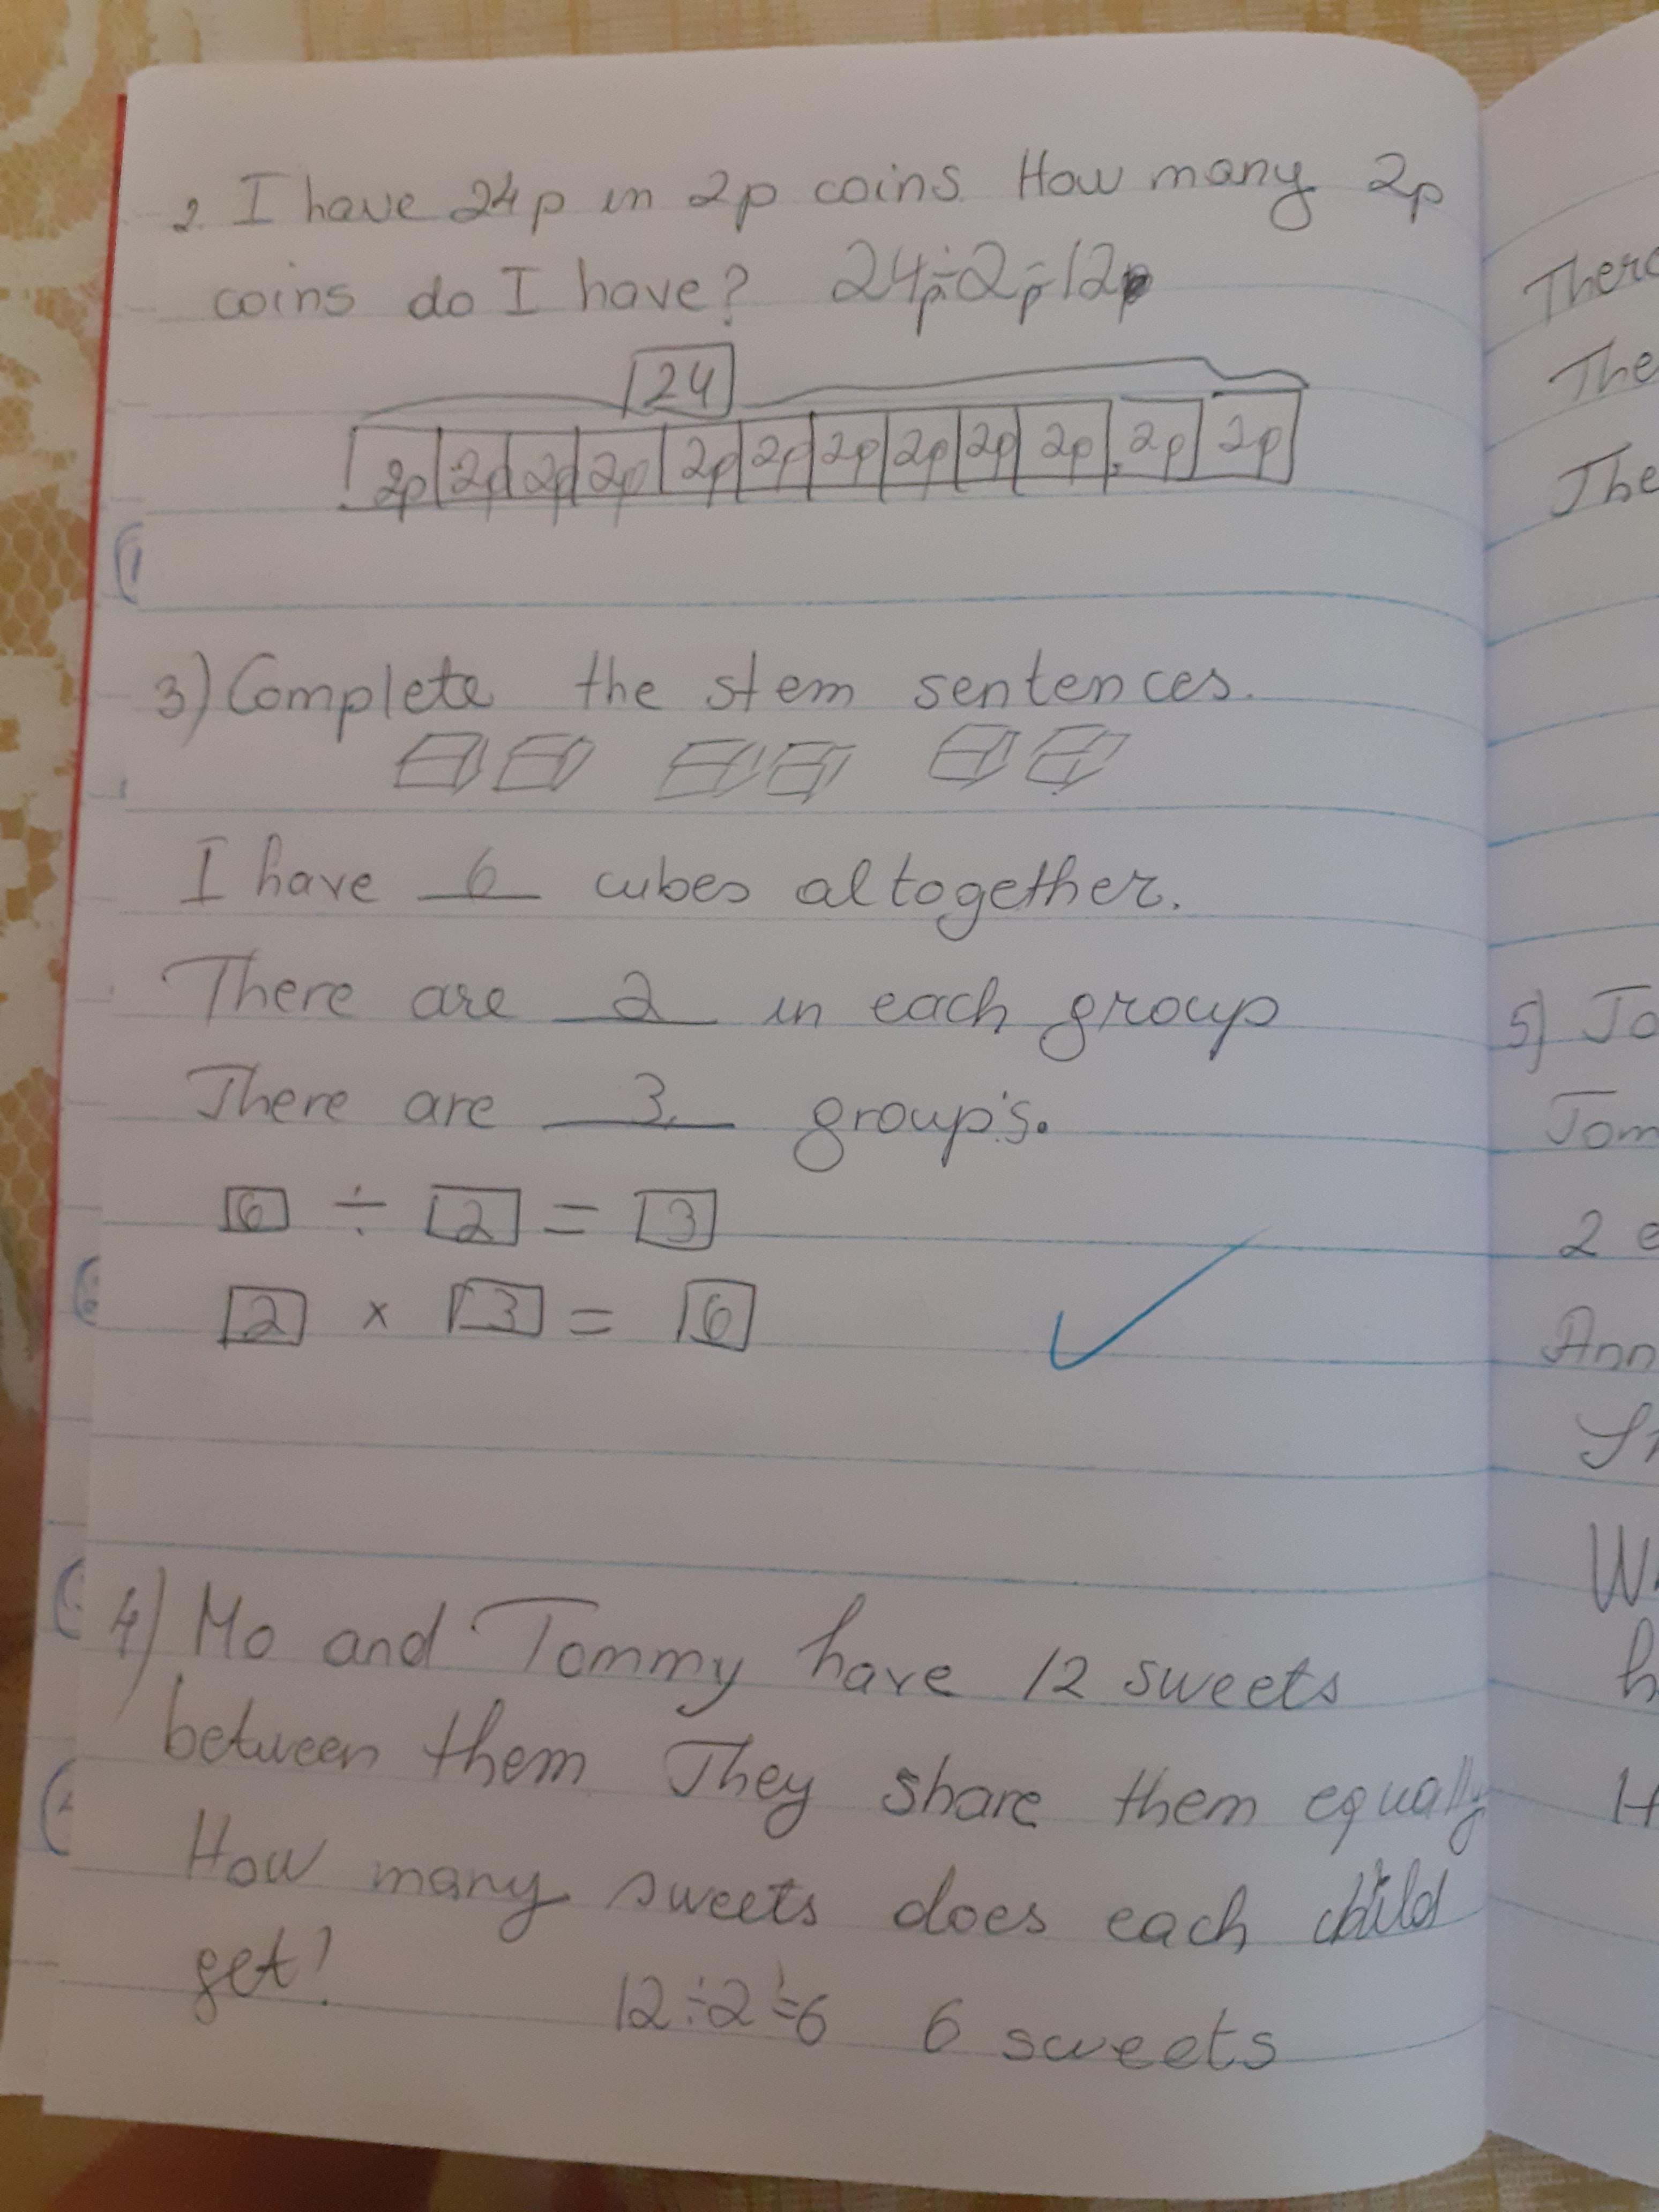 2. I have 24p in 2p coins. How many 2p
coins do I have? 24p÷2p=12
24
2p 2p 2p 2p 2p 2p 2p 2p 2p 2p 2p 2p
3) Complete the stem sentences.
I have 6 cubes altogether.
There are 2 in each group
There are 3 group's.
6 ÷ 2 = 3
2 x 3 = 6
4) Mo and Tommy have 12 sweets
between them They share them equally
How many sweets does each child
get?
12÷2=6 6 sweets
The
The
5) To
Tom
2
Ann